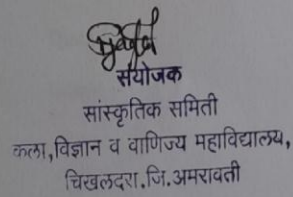 संयोजक
सांस्कृतिक समिती
कला,विज्ञान व वाणिज्य महाविद्यालय,
चिखलदरा.जि.अमरावती